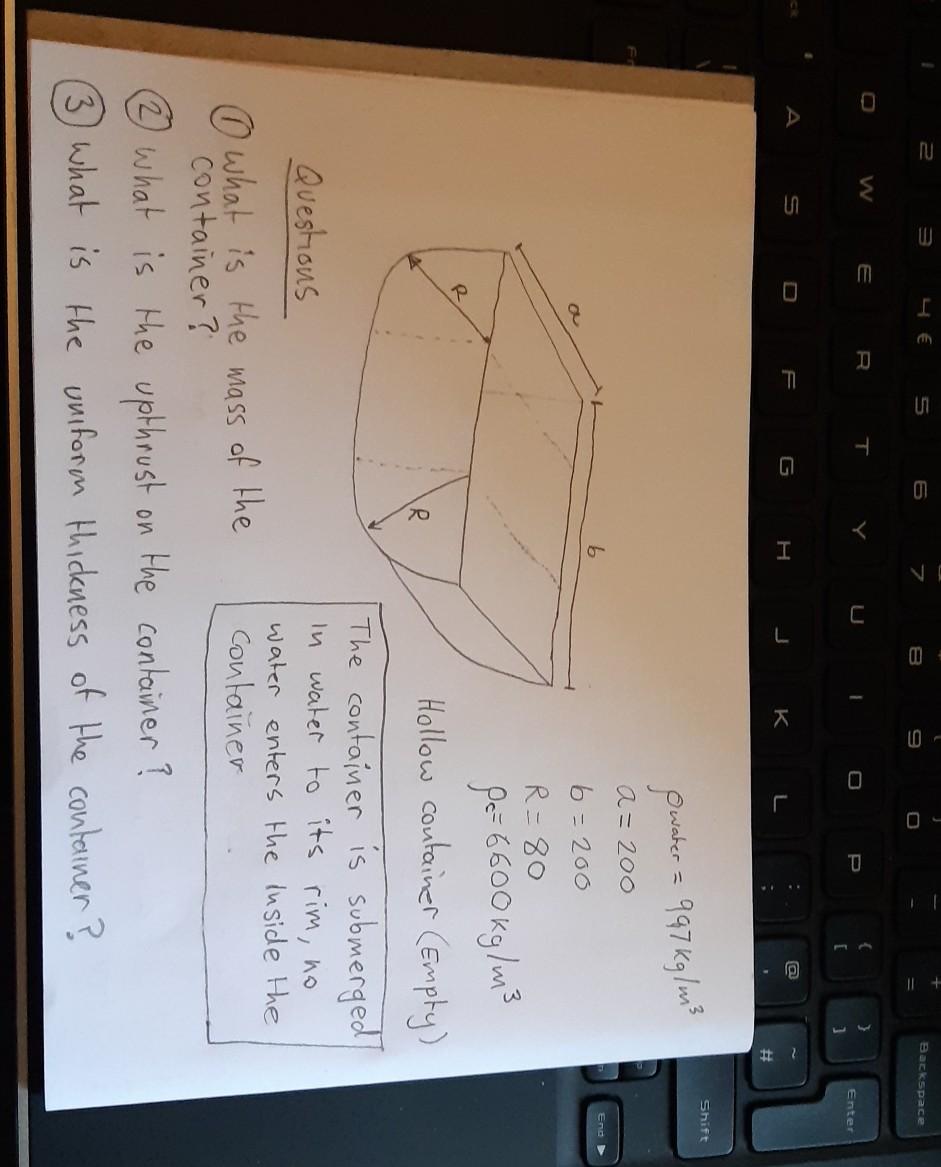 ρwater = 997kg/m³
a = 200
b = 200
R = 80
ρc = 6600kg/m³
Hollow container (Empty)
a
b
R
R
The container is submerged
in water to its rim, no
water enters the inside the
container
Questions
① what is the mass of the
container?
② what is the upthrust on the container?
③ what is the uniform thickness of the container?
1 2 3 4 € 5 6 7 8 9 0 - + = Backspace
Q W E R T Y U I O P { [ } ] Enter
A S D F G H J K L : ; @ ' ~ #
| \ Shift
Fn End